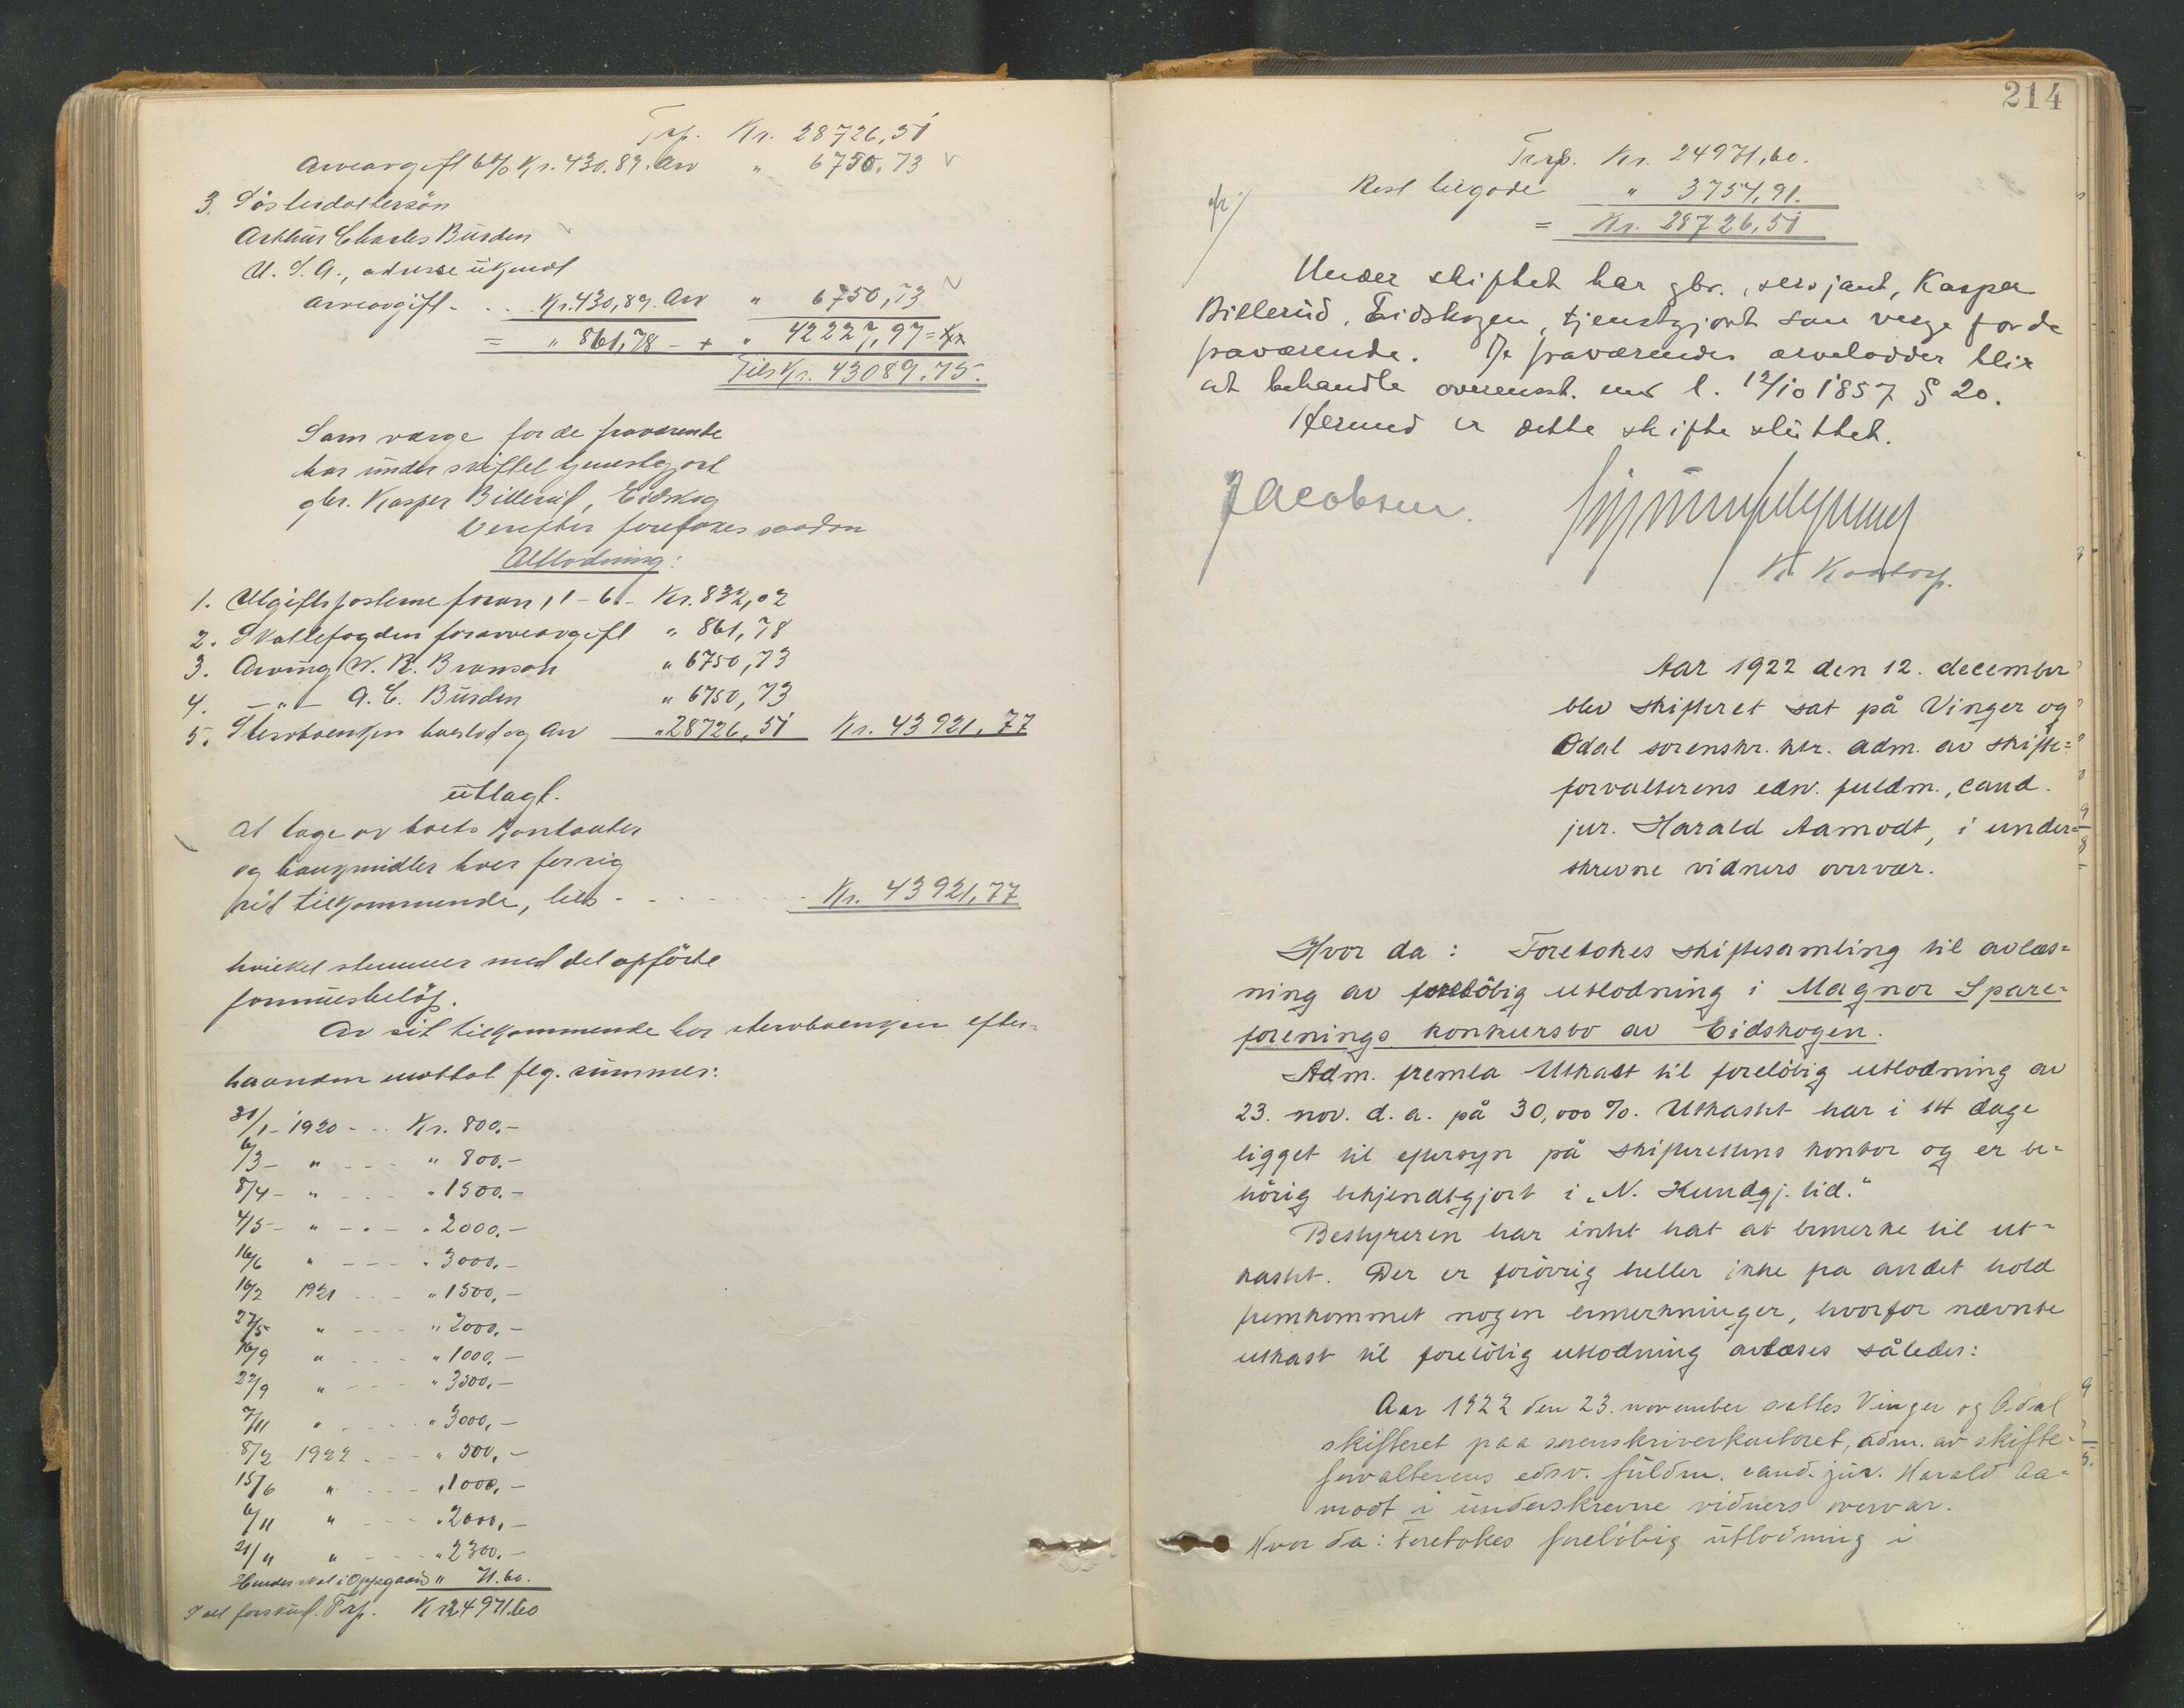 Trp. Kr. 28726,51
Arveavgift 6% Kr. 430.89. Arv " 6750,73
3. Søsterdattersön
Arthur Charles Burden
U. S. A., adresse ukjendt
arveavgift - . . Kr. 430,89. Arv " 6750,73
= " 861,78 - + " 42227,97 = Kr.
Tils Kr. 43089.75.
Som værge for de fraværende
har under skiftet tjenestegjort
gbr. Kasper Billerud, Eidskog
Derefter foretokes saadan
Utlodning:
1. Utgiftsposterne foran 1 - 6 - Kr. 832,02
2. Skattefogden for arveavgift " 861,78
3. Arving W. R. Bronson " 6750,73
4. - " - A. C. Burden " 6750,73
5. Sterboenken boslod og arv " 28726,51 Kr. 43921,77
utlagt.
At tage av boets kontanter
og bankmidler hver for sig
sit tilkommende, tils - . . . . Kr. 43921,77
hvilket stemmer med det opförte
formuesbelöp.
Av sit tilkommende har sterboenken efter-
haanden mottat flg. summer:
31/1 - 1920 - . . Kr. 800.-
6/3 - " - - - " 800.-
8/4 - " - - - " 1500.-
4/5 - " - - - " 2000.-
16/6 " - - - " 3000.-
16/2 1921 . . - " 1500,-
27/5 " - - - " 2000,-
16/9 " . . - " 1000,-
22/9 " - - - " 3500,-
7/11 " . . . " 3000,-
8/2 - 1922 . . - " 500,-
15/6 " . . . " 1000,-
6/11 " - - - " 2000,-
21/11 " - - - " 2300.-
Hendes skat i Oppegaard " 71.60.
I alt forskud. Trp. Kr 24971.60
214
Trsp. Kr. 24971,60.
Rest tilgode " 3754,91.
= Kr. 28726,51
Under skiftet har gbr., sersjant, Kasper
Billerud, Eidskogen, tjenstgjort som verge for de
fraværende. De fraværendes arvelodder blir
at behandle overensst. med l. 12/10 1857 § 20.
Hermed er dette skifte sluttet.
Jacobsen.
K. Kastorp.
Aar 1922 den 12. december
blev skifteret sat på Vinger og
Odal sorenskr. ktr. adm. av skifte=
forvalterens edsv. fuldm., cand.
jur. Harald Aamodt, i under=
skrevne vidners overvær.
Hvor da: Foretokes skiftesamling til avlæs=
ning av forelöbig utlodning i Magnor Spare=
forenings konkursbo av Eidskogen.
Adm. fremla Utkast til forelöbig utlodning av
23. nov. d. a. på 30,000 %. Utkastet har i 14 dage
ligget til eftersyn på skifterettens kontor og er be=
hörig bekjendtgjort i „N. Kundgj. tid."
Bestyreren har intet hat at bemerke til ut=
kastet. Der er forövrig heller ikke fra andet hold
fremkommet nogen bemerkninger, hvorfor nævnte
utkast til forelöbig utlodning avlæses således:
Aar 1922 den 23. november sattes Vinger og Odal
skifteret paa sorenskriverkontoret, adm. av skifte-
forvalterens edsv. fuldm. cand. jur. Harald Aa-
modt i underskrevne vidners overvær.
Hvor da: Foretokes forelöbig utlodning i